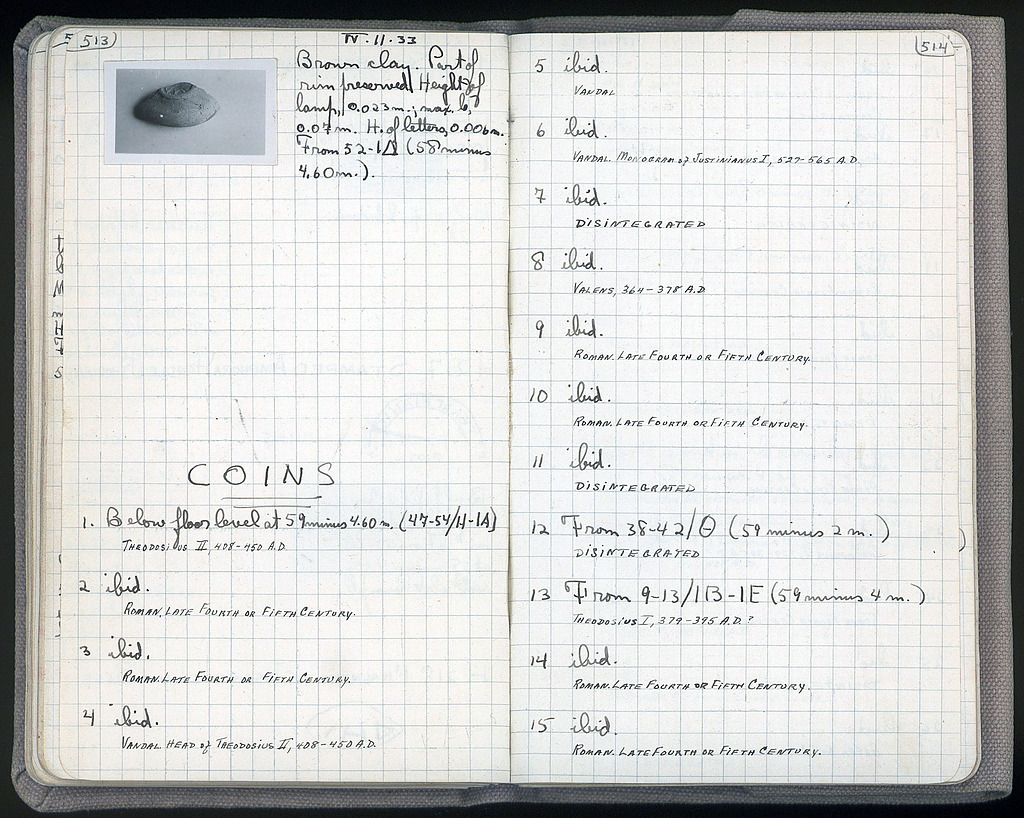 513
IV.11.33
Brown clay. Part of
rim preserved. Height of
lamp, 0.023 m.; max. L,
0.07 m. H. of letters, 0.006 m.
From 52-1Δ (58 minus
4.60 m.).
COINS
1. Below floor level at 59 minus 4.60 m. (47-54/H-1A)
THEODOSIUS II, 408-450 A.D.
2 ibid.
ROMAN. LATE FOURTH OR FIFTH CENTURY.
3 ibid.
ROMAN. LATE FOURTH OR FIFTH CENTURY.
4 ibid.
VANDAL. HEAD of THEODOSIUS II, 408-450 A.D.
514
5 ibid.
VANDAL
6 ibid.
VANDAL. MONOGRAM of JUSTINIANUS I, 527-565 A.D.
7 ibid.
DISINTEGRATED
8 ibid.
VALENS, 364-378 A.D
9 ibid.
ROMAN. LATE FOURTH OR FIFTH CENTURY.
10 ibid.
ROMAN. LATE FOURTH OR FIFTH CENTURY.
11 ibid.
DISINTEGRATED
12 From 38-42/Θ (59 minus 2 m.)
DISINTEGRATED
13 From 9-13/1B-1E (59 minus 4 m.)
THEODOSIUS I, 379-395 A.D.?
14 ibid.
ROMAN. LATE FOURTH OR FIFTH CENTURY.
15 ibid.
ROMAN. LATE FOURTH OR FIFTH CENTURY.